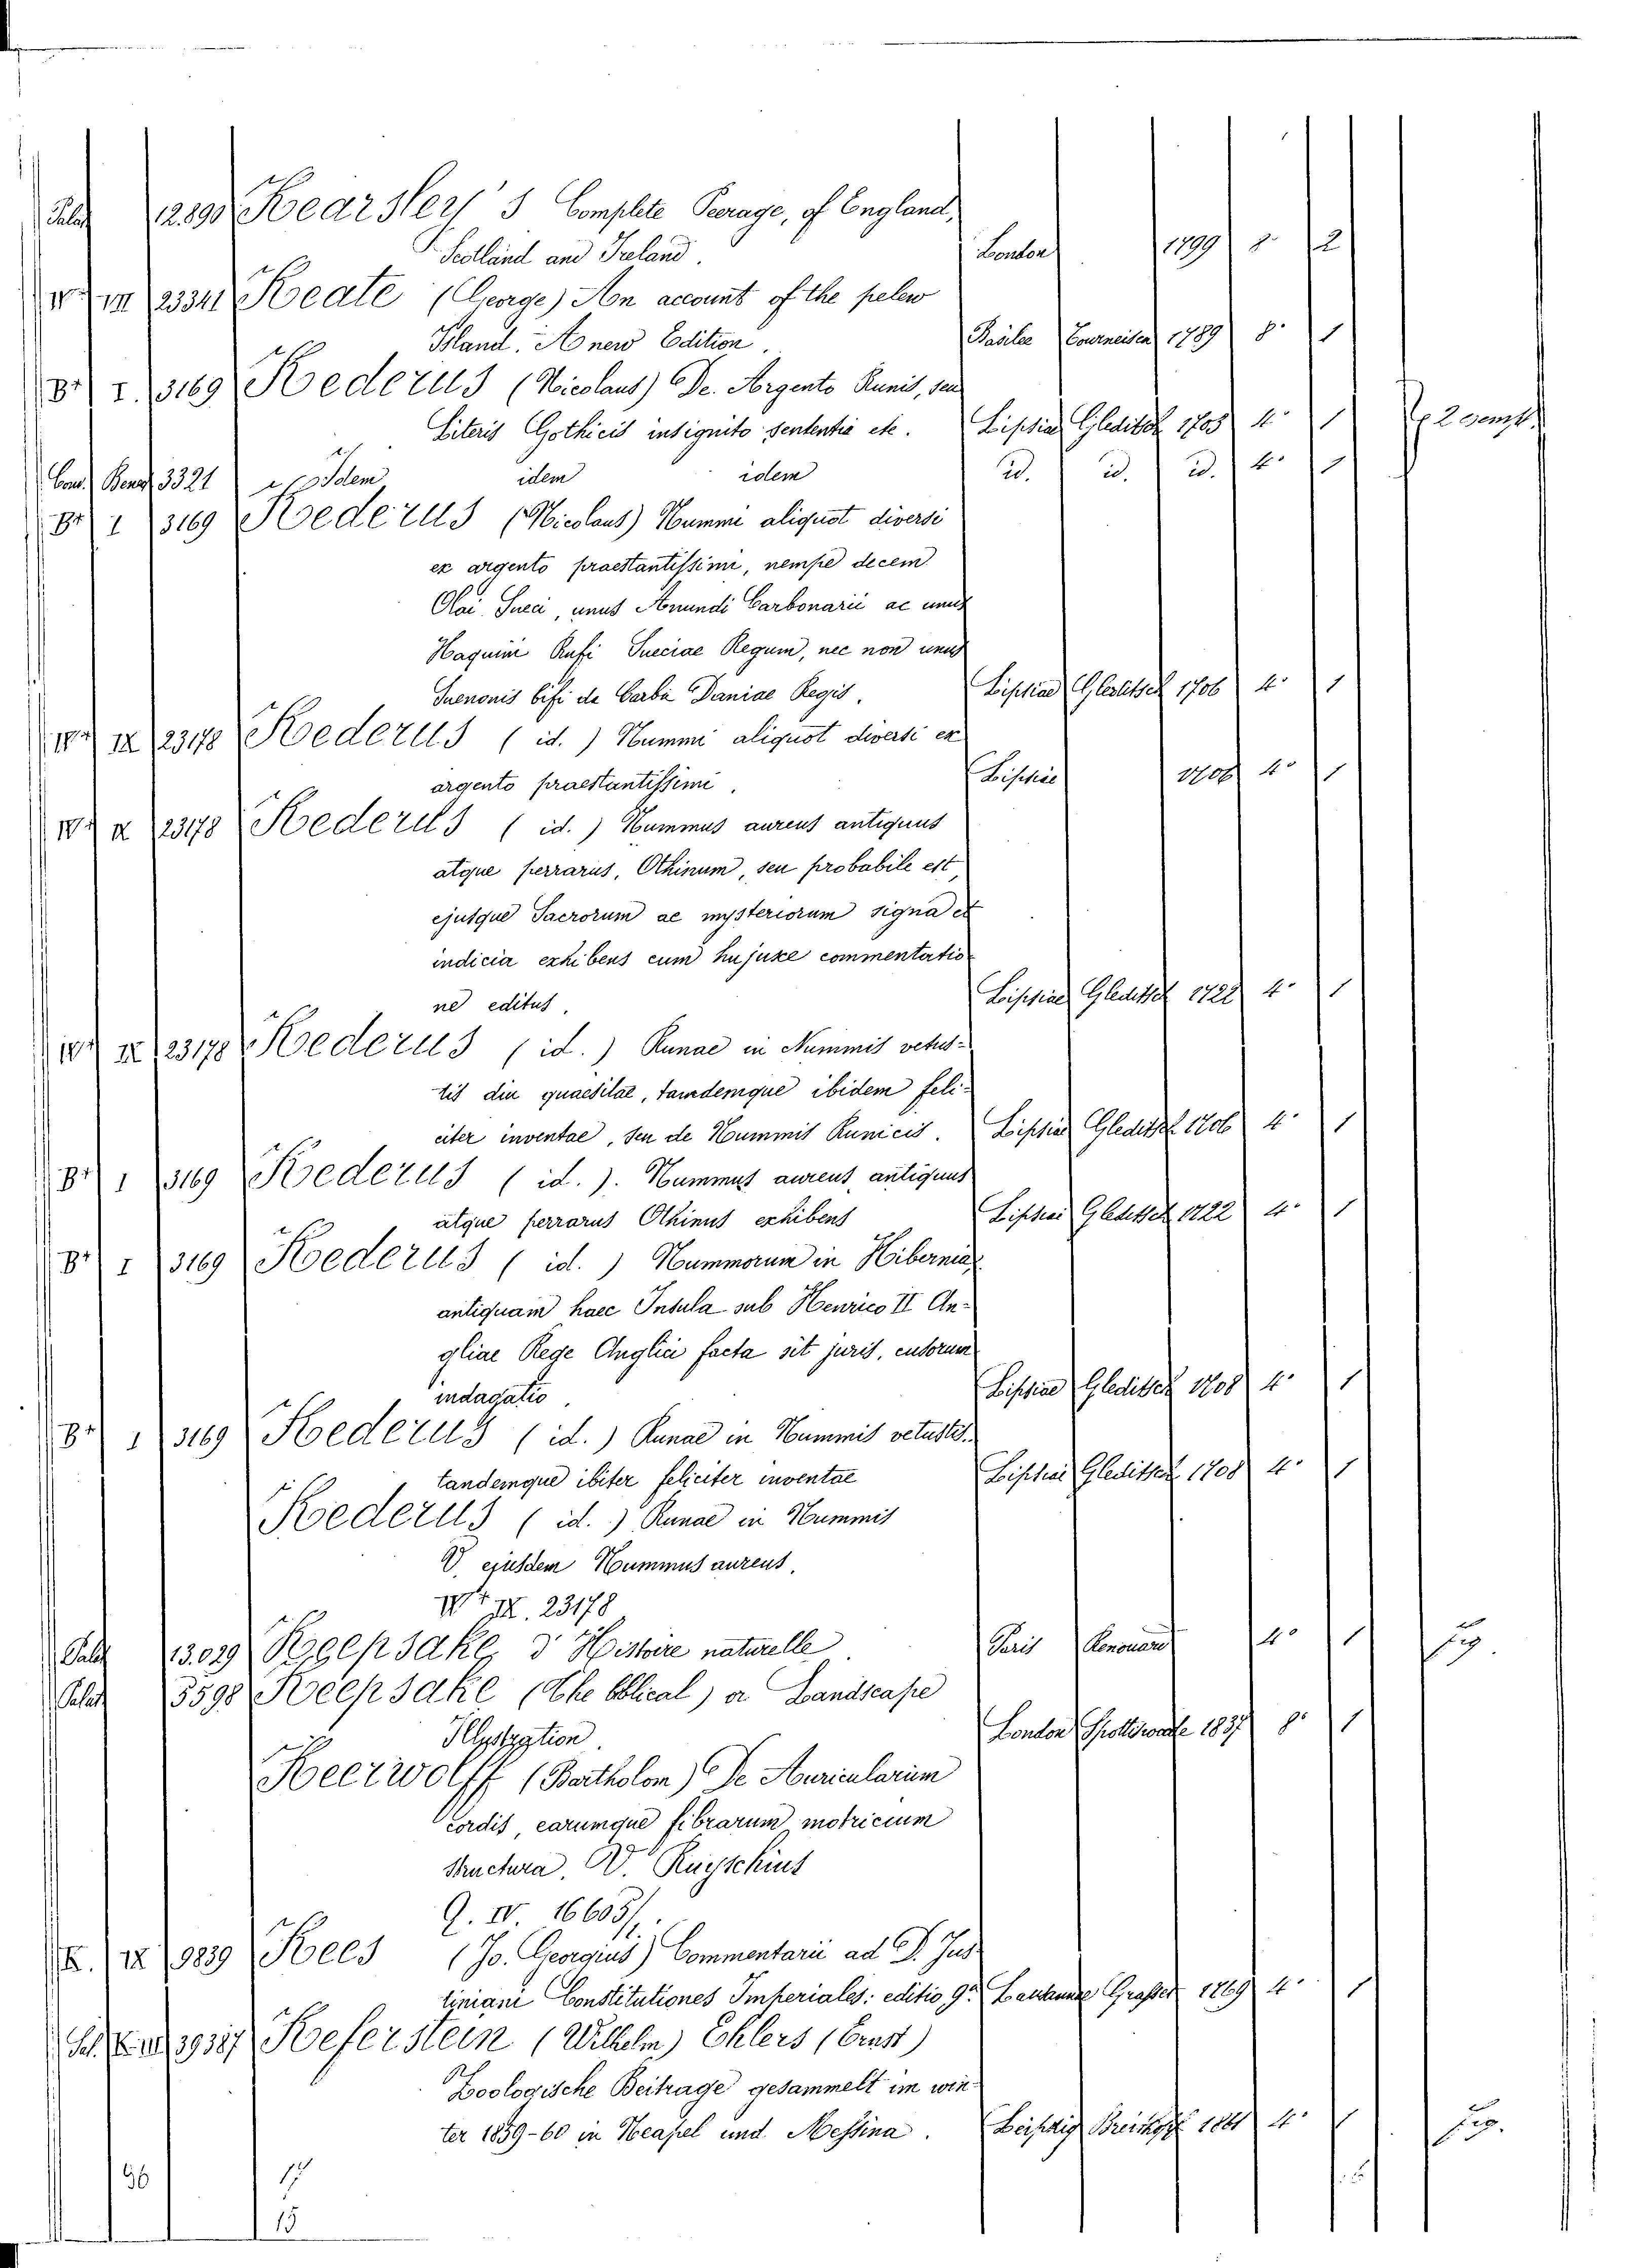 Palat 12890 Kearsley's Complete Peerage, of England,
Scotland and Ireland. London 1799 8° 2
IV^r VII 23341 Keate (George) An account of the pelew
Island. A new Edition. Basilee Tourneisen 1789 8° 1
B^r I. 3169 Kederus (Nicolaus) De Argento Runis, seu
Literis Gothicis insignito sententia etc. Lipsiae Gleditsch 1703 4° 1
Cons. Benef 3321 Idem idem idem id. id. id. 4° 1
B^r I 3169 Kederus (Nicolaus) Nummi aliquot diversi
ex argento praestantissimi, nempe decem
Olai Sueci, unus Amundi Carbonarii ac unus
Haquini Rufi Sueciae Regum, nec non unus
Suenonis bifi da Barba Daniae Regis. Lipsiae Gleditsch 1706 4° 1
IV^r IX 23178 Kederus (id.) Nummi aliquot diversi ex
argento praestantissimi. Lipsiae 1706 4° 1
IV^r IX 23178 Kederus (id.) Nummus aureus antiquus
atque perrarus, Othinum, seu probabile est,
ejusque Sacrorum ac mysteriorum signa et
indicia exhibens cum hujusce commentatio
ne editus. Lipsiae Gleditsch 1722 4° 1
IV^r IX 23178 Kederus (id.) Runae in Nummis vetus-
tis diu quaesitae, tamdemque ibidem feli-
citer inventae, seu de Nummis Runicis. Lipsiae Gleditsch 1706 4° 1
B^r I 3169 Kederus (id.). Nummus aureus antiquus
atque perrarus Othinus exhibens Lipsiae Gleditsch 1722 4° 1
B^r I 3169 Kederus (id.) Nummorum in Hibernia
antiquam haec Insula sub Henrico II An-
gliae Rege Anglici facta sit juris, cusorum
indagatio. Lipsiae Gleditsch 1708 4° 1
B^r I 3169 Kederus (id.) Runae in Nummis vetustis.
tandemque ibiter feliciter inventae Lipsiae Gleditsch 1708 4° 1
Kederus (id.) Runae in Nummis
V. ejusdem Nummus aureus.
IV^r IX. 23178
Palat 13.029 Keepsake d'Histoire naturelle. Paris Renouard 4° 1 fig.
Palat 5598 Keepsake (The blical) or Landscape
Illystration. London Spottiswoode 1837 8° 1
Keerwolff (Bartholom) De Auricularum
cordis, earumque fibrarum motricium
structura. V. Ruyschius
Q. IV 16605/
X. IX 9839 Kees (Jo. Georgius) Commentarii ad D. Jus
tiniani Constitutiones Imperiales: editio 9ª Lausannae Grasset 1769 4° 1
39387 Keferstein (Wilhelm) Ehlers (Ernst)
Zoologische Beitrage gesammelt im win-
ter 1859-60 in Neapel und Messina. Leipzig Breitkopf 1861 4° 1 fig.
96 17
15